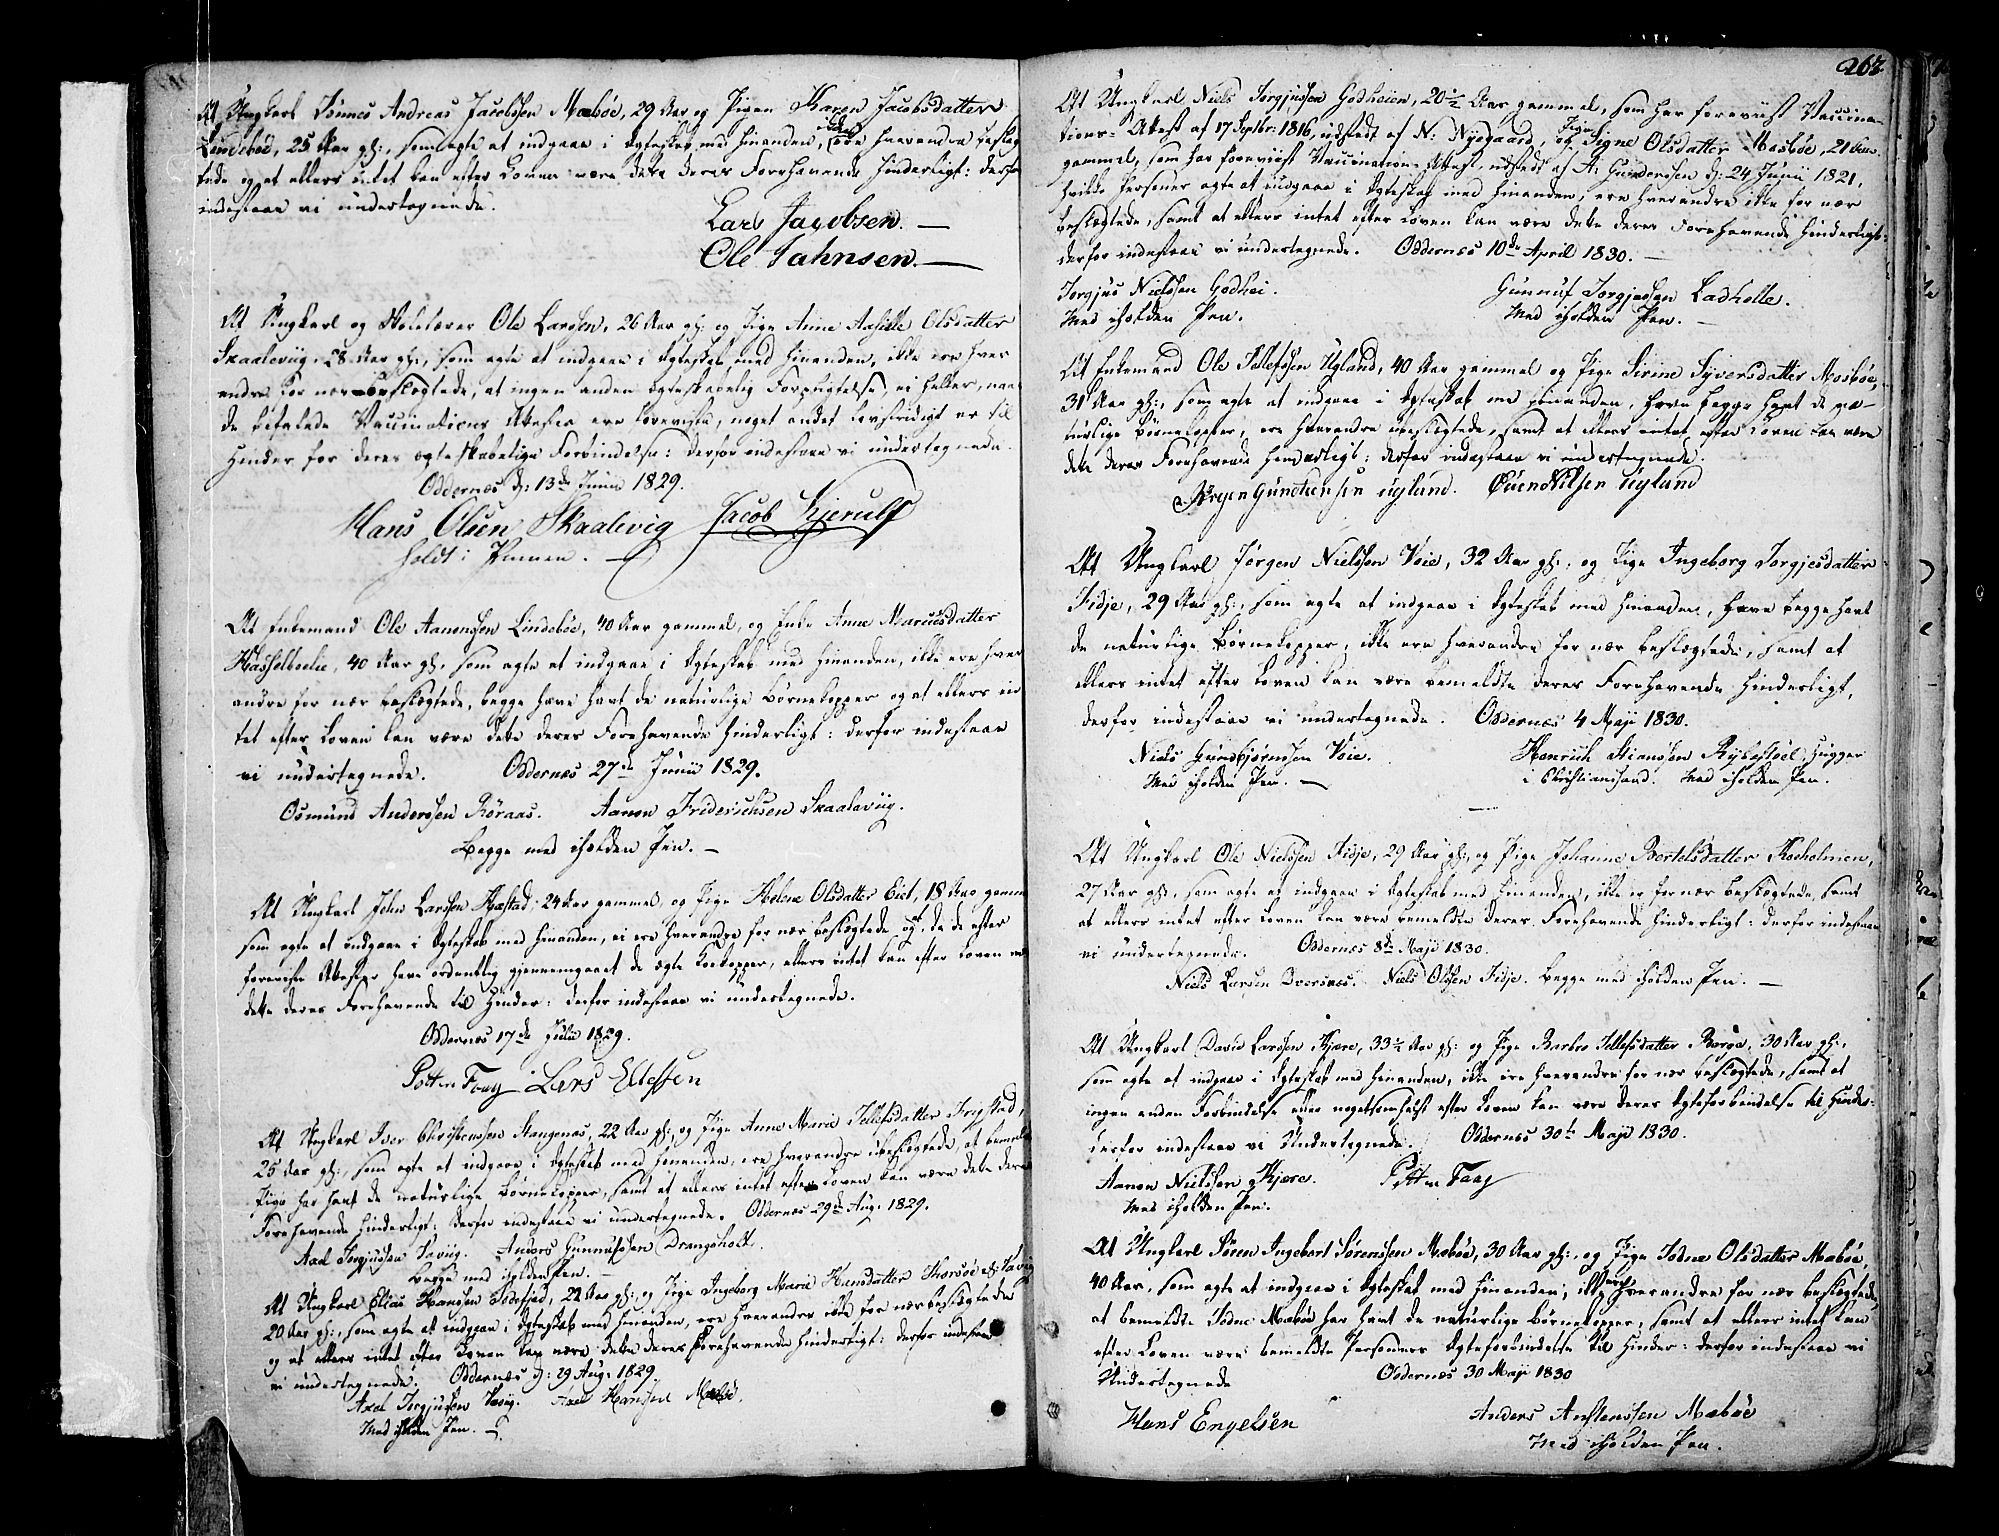 At Ungkarl Tønnes Andreas Jacobsen Mæbøe, 29 Aar, og Pigen Karen Jacobsdatter
Lindebøe, 25 Aar gl:, som agte at indgaae i Ægteskab med hinanden, ikke ere hverandre beslæg-
tede og at ellers intet kan efter Loven være dette deres Forehavende hinderligt: derfor
indestaae vi undertegnede.
Lars Jacobsen. —
Ole Jahnsen. —
At Ungkarl og Skolelærer Ole Larssen, 26 Aar gl: og Pige Anne Aasille Olsdatter
Skaaleviig, 28 Aar gl:, som agte at indgaae i Ægteskab med hinanden, ikke ere hver
andre for nær beslægtede, at ingen anden ægteskabelig Forpligtelse, ei heller, naar
de befalede Vaccinations Attester ere foreviste, noget andet Lovstridigt er til
Hinder for deres ægteskabelige Forbindelse: derfor indestaae vi undertegnede.
Oddernæs d: 13de Junii 1829.
Hans Olsen Skaalevig Jacob Kjerulf
holdt i Pennen. —
At Enkemand Ole Aanonssen Lindebøe, 40 Aar gammel, og Enke Anne Marcusdatter
Hasselbælie, 40 Aar gl: som agte at indgaae i Ægteskab med hinanden, ikke ere hver
andre for nær beslægtede, begge have havt de naturlige Børnekopper og at ellers in
tet efter Loven kan være dette deres Forehavende hinderligt: derfor indestaae
vi undertegnede. Oddernæs 27de Junii 1829.
Osmund Anderssen Røraas. Aanon Friderichsen Skaalaviig.
Begge med iholden Pen. —
At Ungkarl John Larssen Hæstad, 24 Aar gammel, og Pige Helene Olsdatter Eiet, 18 Aar gamm
som agte at indgaae i Ægteskab med hinanden, ei ere hverandre for nær beslægtede, og, da de efter
foreviste Attester have ordentlig gjennemgaaet de ægte Koekopper, ellers intet kan efter Loven være
dette deres Forehavende til Hinder: derfor indestaae vi undertegnede.
Oddernæs 17de Julii 1829.
Petter Foay Lars Ellefsen
At Ungkarl Iver Christenssen Stangenæs, 22 Aar gl:, og Pige Anne Marie Tellefsdatter Frystad,
25 Aar gl:, som agte at indgaae i Ægteskab med hinanden, ere hverandre ubeslægtede, at bemeldte
Pige har havt de naturlige Børnekopper, samt at ellers intet efter Loven kan være dette deres
Forehavende hinderligt: derfor indestaae vi undertegnede. Oddernæs 29de Aug: 1829.
Axel Jørgjussen Vaviig. Anders Gunnufssen Drangsholt.
Begge med iholden Pen. —
At Ungkarl Elias Hanssen Indefjed, 22 Aar gl:, og Pige Ingeborg Marie Hansdatter Korsøe
20 Aar gl:, som agte at indgaae i Ægteskab med hinanden, ere hverandre ikke for nær beslægtede
og at ellers intet efter Loven kan være dette deres Forehavende hinderligt: derfor indestaae
vi undertegnede. Oddernæs d: 29 Aug: 1829
Axel Jørgjussen Vavig. Axel Hansen Mæbøe.
Med iholden Pen. —
262
At Ungkarl Niels Jørgjussen Godheien, 20½ Aar gammel, som har foreviist Vaccina-
tions-Attest af 17 Septbr: 1816, udstedt af N: Nygaard, og Pigen Signe Olsdatter Mosbøe, 21 Aar
gammel, som har foreviist Vaccinations-Attest udstedt af A: Gundersen d: 24 Junii 1821,
hvilke Personer agte at indgaae i Ægteskab med hinanden, ere hverandre ikke for nær
beslægtede, samt at ellers intet efter Loven kan være dette deres Forehavende hinderligt:
derfor indestaae vi undertegnede. Oddernæs 10de April 1830. —
Jorgjus Nielssen Godhei. Gunnuf Jorgjussen Ladholle.
Med iholden Pen. Med iholden Pen. —
At Enkemand Ole Tellefssen Ugland, 40 Aar gammel og Pige Sirine Syversdatter Mosbøe,
31 Aar gl:, som agte at indgaae i Ægteskab med hinanden, have begge havt de na-
turlige Børnekopper, ere hverandre ubeslægtede, samt at ellers intet efter Loven kan være
dette deres Forehavende hinderligt: derfor indestaae vi undertegnede.
Jørgen Gundersen Ugland. Øuend Nilsen Ugland
At Ungkarl Jørgen Nielssen Voie, 32 Aar gl:, og Pige Ingeborg Jorgjesdatter
Fidje, 29 Aar gl:, som agte at indgaae i Ægteskab med hinanden, have begge havt
de naturlige Børnekopper, ikke ere hverandre for nær beslægtede, samt at
ellers intet efter Loven kan være bemeldte deres Forehavende hinderligt,
derfor indestaae vi undertegnede. Oddernæs 4 Maji 1830.
Niels Gunbjørnsen Voie. Henrich Stianssen Rybestøel, Hugger
Med iholden Pen. — i Christianssand. Med iholden Pen.
—
At Ungkarl Ole Nielssen Fidje, 29 Aar gl:, og Pige Johanne Bertelsdatter Skoeholmen,
27 Aar gl:, som agte at indgaae i Ægteskab med hinanden, ikke er for nær beslægtede, samt
at ellers intet efter Loven kan være bemeldte deres Forehavende hinderligt: derfor indestaae
vi undertegnede. Oddernæs 8de Maji 1830.
Niels Larsen Dversnæs. Niels Olssen Fidje. Begge med iholden Pen. —
At Ungkarl David Larssen Kjære, 33½ Aar gl: og Pige Barbro Tellefsdatter Barøe, 30 Aar gl:,
som agte at indgaae i Ægteskab med hinanden, ikke ere hverandre for nær beslægtede, samt at
ingen anden Forbindelse eller nogetsomhelst efter Loven kan være deres Ægteforbindelse til Hinder:
derfor indestaae vi Undertegnede. Oddernæs 30te Maji 1830.
Aanon Nielssen Kjære. Petter Foay
Med iholden Pen.
At Ungkarl Søren Ingebart Sørenssen Mæbøe, 30 Aar gl:, og Pige Todne Olsdatter Mæbøe,
40 Aar, som agte at indgaae i Ægteskab med hinanden; ikke ere hverandre for nær beslægtede,
at bemeldte Todne Mæbøe har havt de naturlige Børnekopper, samt at ellers intet kan
efter Loven være bemeldte Personers Ægteforbindelse til Hinder: derfor indestaae vi
Undertegnede Oddernæs 30 Maji 1830
Hans Engelsen Anders Anstenssen Mæbøe
Med iholden Pen.